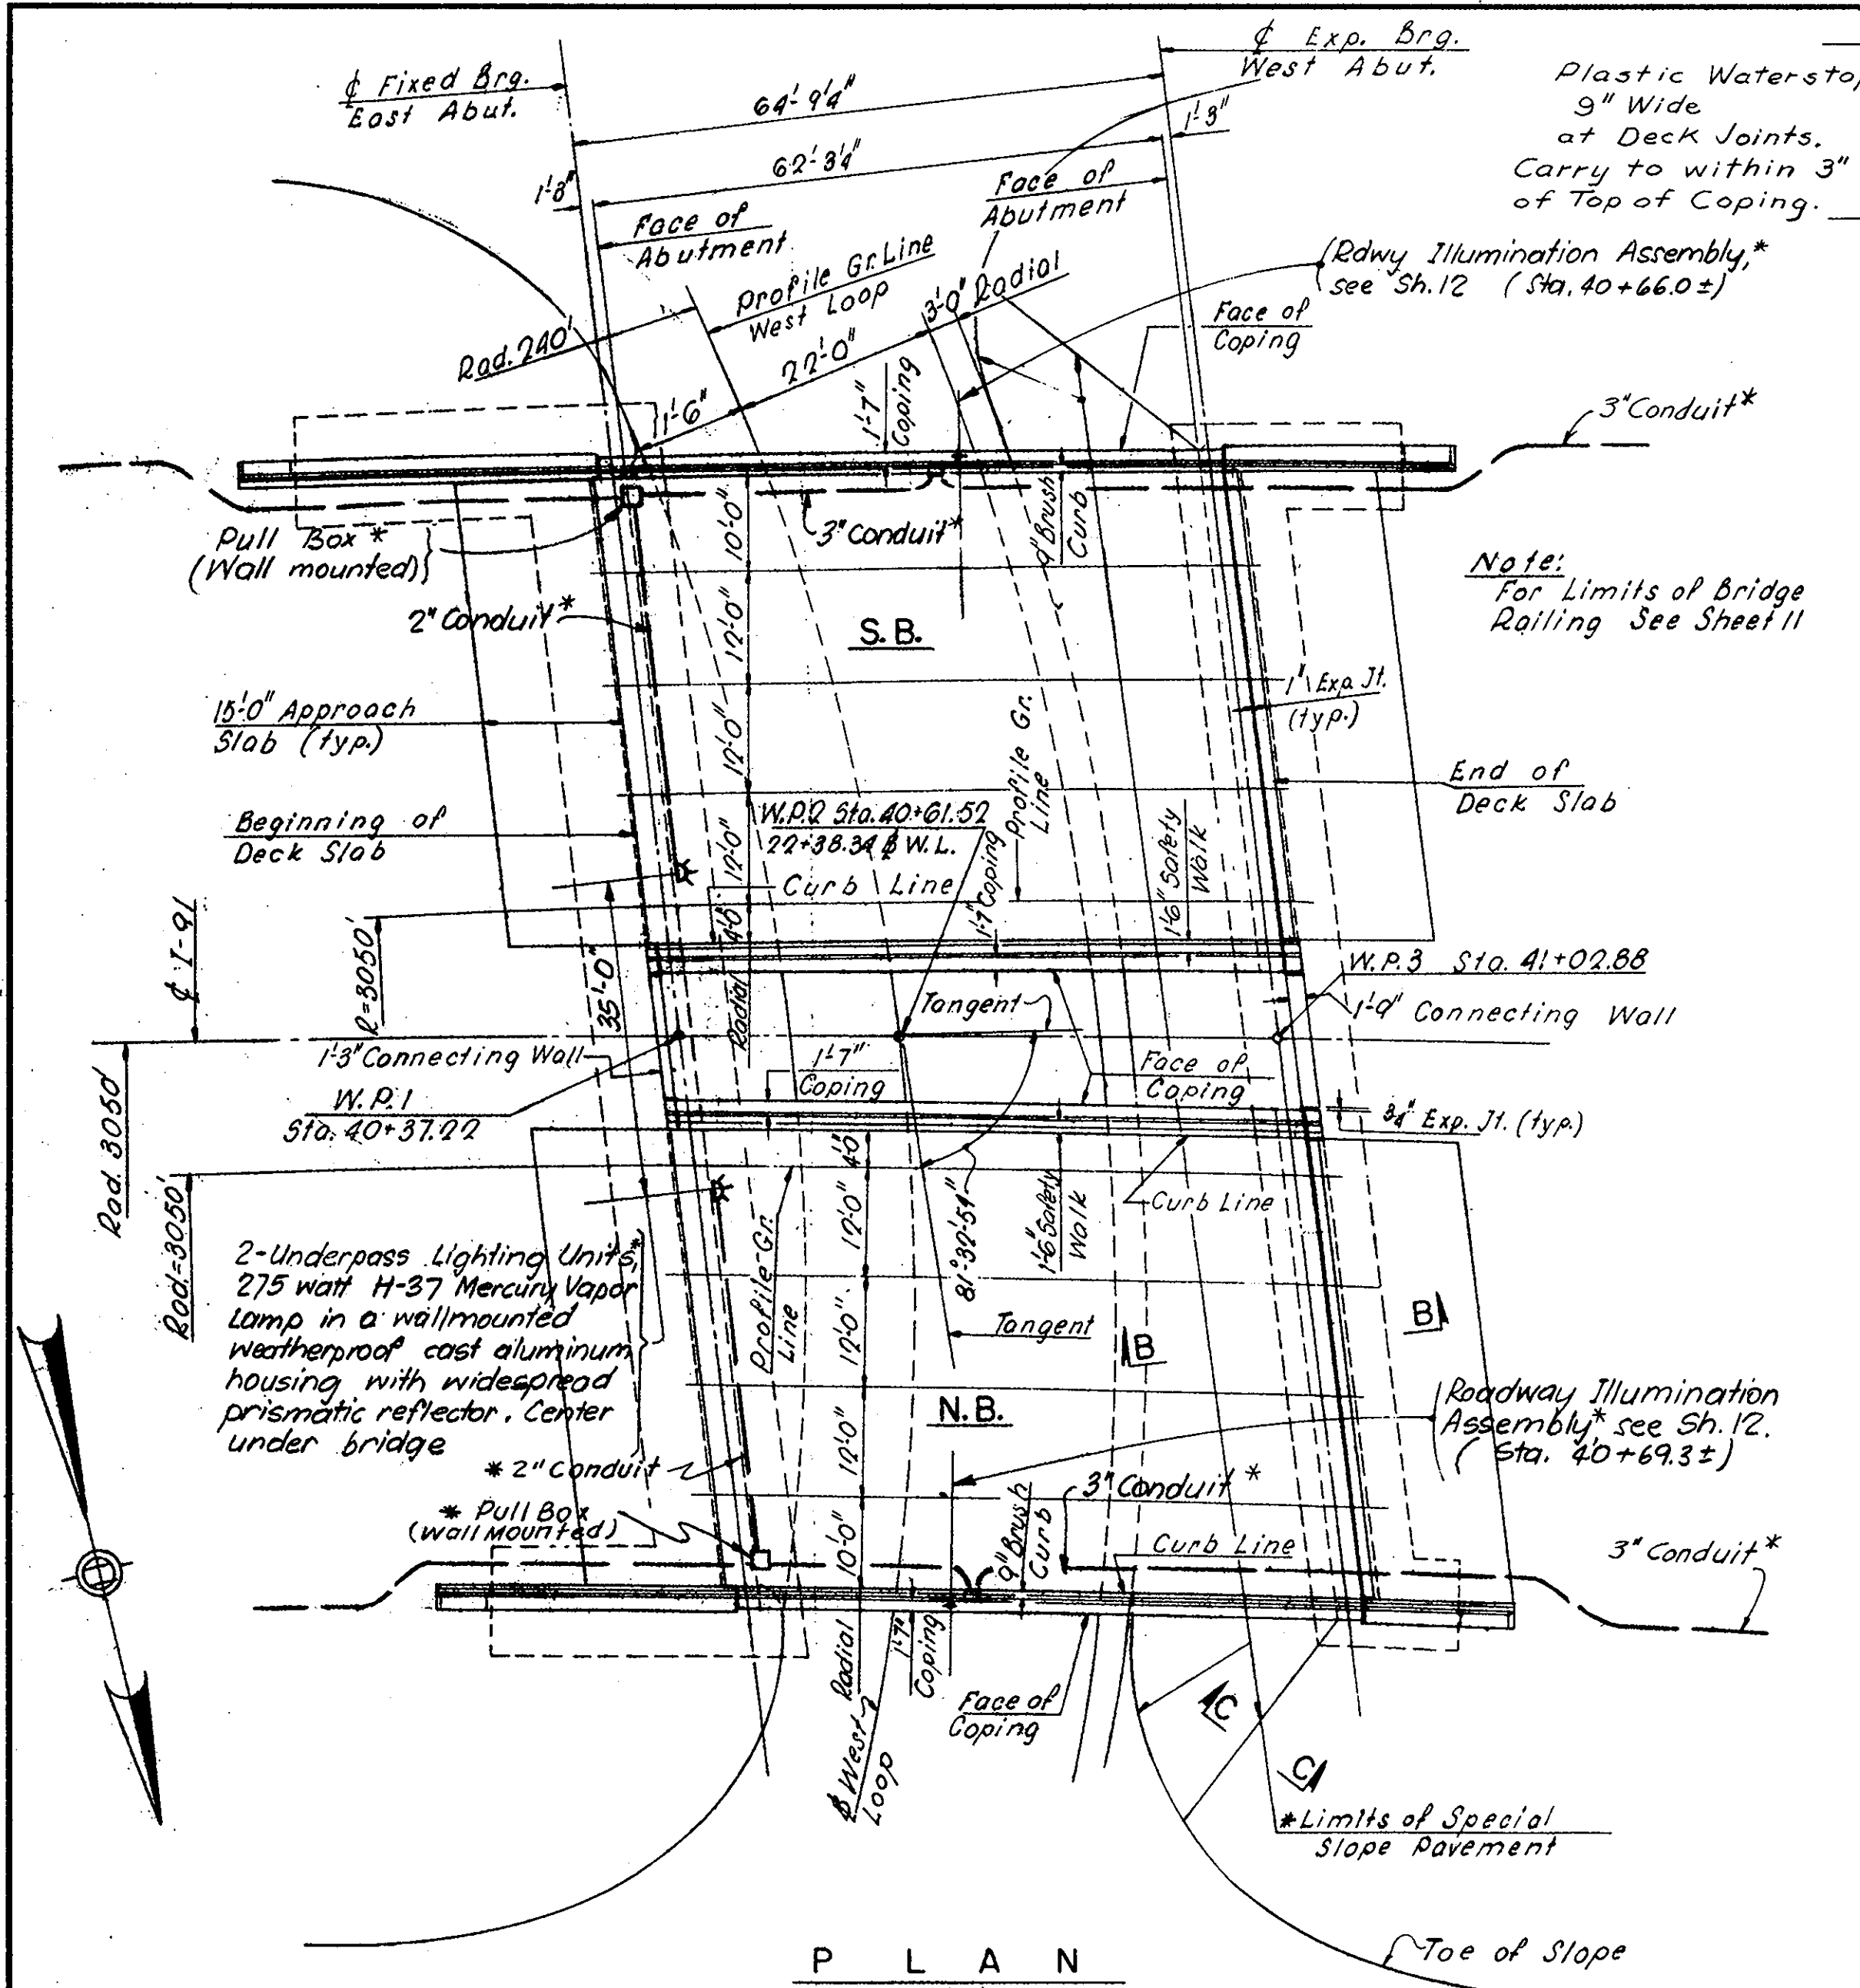 ₵ Fixed Brg.
East Abut.
₵ Exp. Brg.
West Abut.
64'-9¼"
62'-3¼"
1'-3"
1'-3"
Plastic
9" Wide
at Deck Joints.
Carry to within 3"
of Top of Coping.
Face of
Abutment
Face of
Abutment
Profile Gr. Line
West Loop
3'-0" Radial
22'-0"
Rad. 240'
1'-6"
1'-7"
Coping
(Rdwy Illumination Assembly,*
see Sh. 12 (Sta. 40+66.0±)
Face of
Coping
3" Conduit*
Pull Box *
(Wall mounted)
3" Conduit*
9" Brush
Curb
2" Conduit*
10'-0"
12'-0"
12'-0"
12'-0"
4'-0"
Radial
S.B.
Note:
For Limits of Bridge
Railing See Sheet 11
15'-0" Approach
Slab (typ.)
1" Exp. Jt.
(typ.)
Profile Gr.
Line
End of
Deck Slab
Beginning of
Deck Slab
W.P.2 Sta. 40+61.52
22+38.34 ₵ W.L.
Curb Line
1'-7" Coping
1'-6" Safety
Walk
₵ I-91
R=3050'
35'-0"
W.P.3 Sta. 41+02.88
1'-9" Connecting Wall
Tangent
1'-3" Connecting Wall
1'-7"
Coping
Face of
Coping
W.P.1
Sta. 40+37.22
¾" Exp. Jt. (typ.)
Rad. 3050'
Rad.=3050'
4'-0"
12'-0"
12'-0"
12'-0"
10'-0"
Radial
81°-32'-54"
1'-6" Safety
Walk
Curb Line
2-Underpass Lighting Units,*
275 watt H-37 Mercury Vapor
Lamp in a wall mounted
weatherproof cast aluminum
housing with widespread
prismatic reflector. Center
under bridge
Profile Gr.
Line
Tangent
B
B
N.B.
Roadway Illumination
Assembly* see Sh. 12.
(Sta. 40+69.3±)
* 2" Conduit
* Pull Box
(Wall Mounted)
3" Conduit *
9" Brush
Curb
Curb Line
3" Conduit*
1'-7"
Coping
Face of
Coping
West
Loop
C
C
*Limits of Special
Slope Pavement
Toe of Slope
PLAN